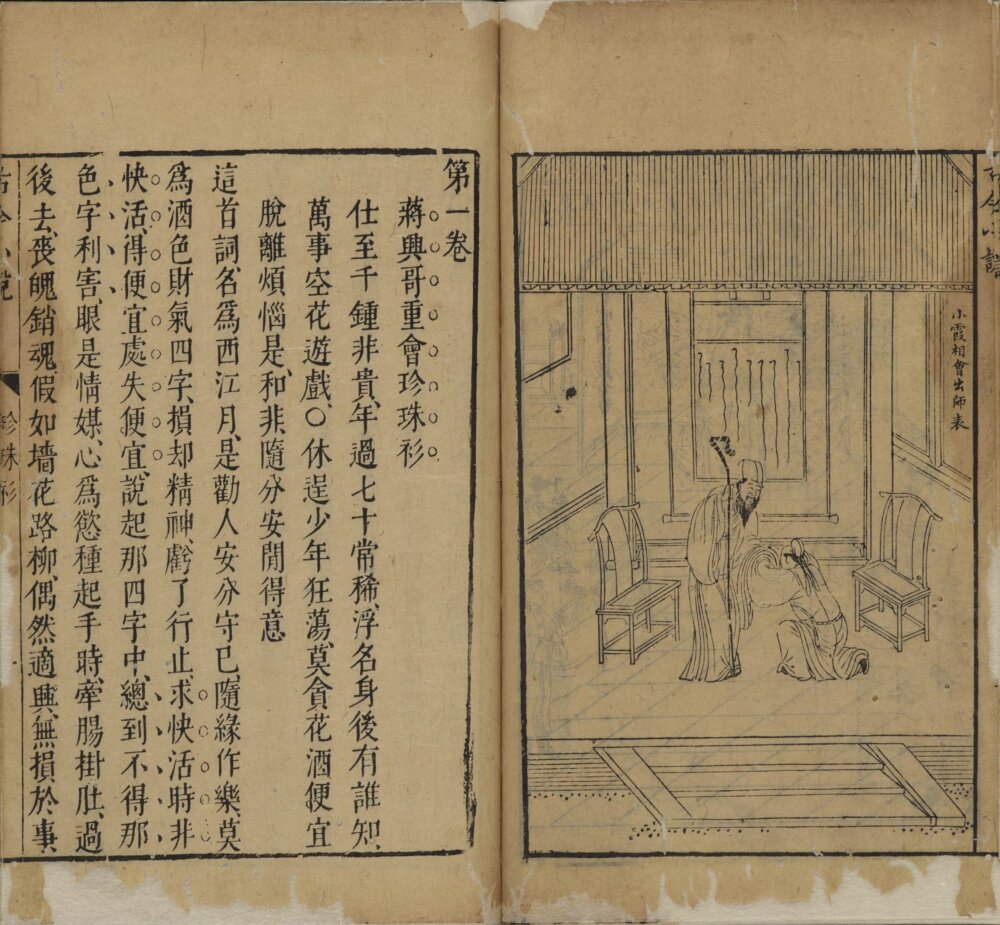 古今小說
小霞相會出師表
第一卷
蔣興哥重會珍珠衫
仕至千鍾非貴、年過七十常稀、浮名身後有誰知、
萬事空花遊戲、○休逞少年狂蕩、莫貪花酒便宜、
脫離煩惱是和非、隨分安閒得意
這首詞、名爲西江月、是勸人安分守己、隨緣作樂、莫
爲酒色財氣四字、損却精神、虧了行止、求快活時非
快活、得便宜處失便宜、說起那四字中、總到不得那
色字利害、眼是情媒、心爲慾種、起手時、牽腸掛肚、過
後去、喪魄銷魂、假如墻花路柳、偶然適興、無損於事、
古今小說
珍珠衫